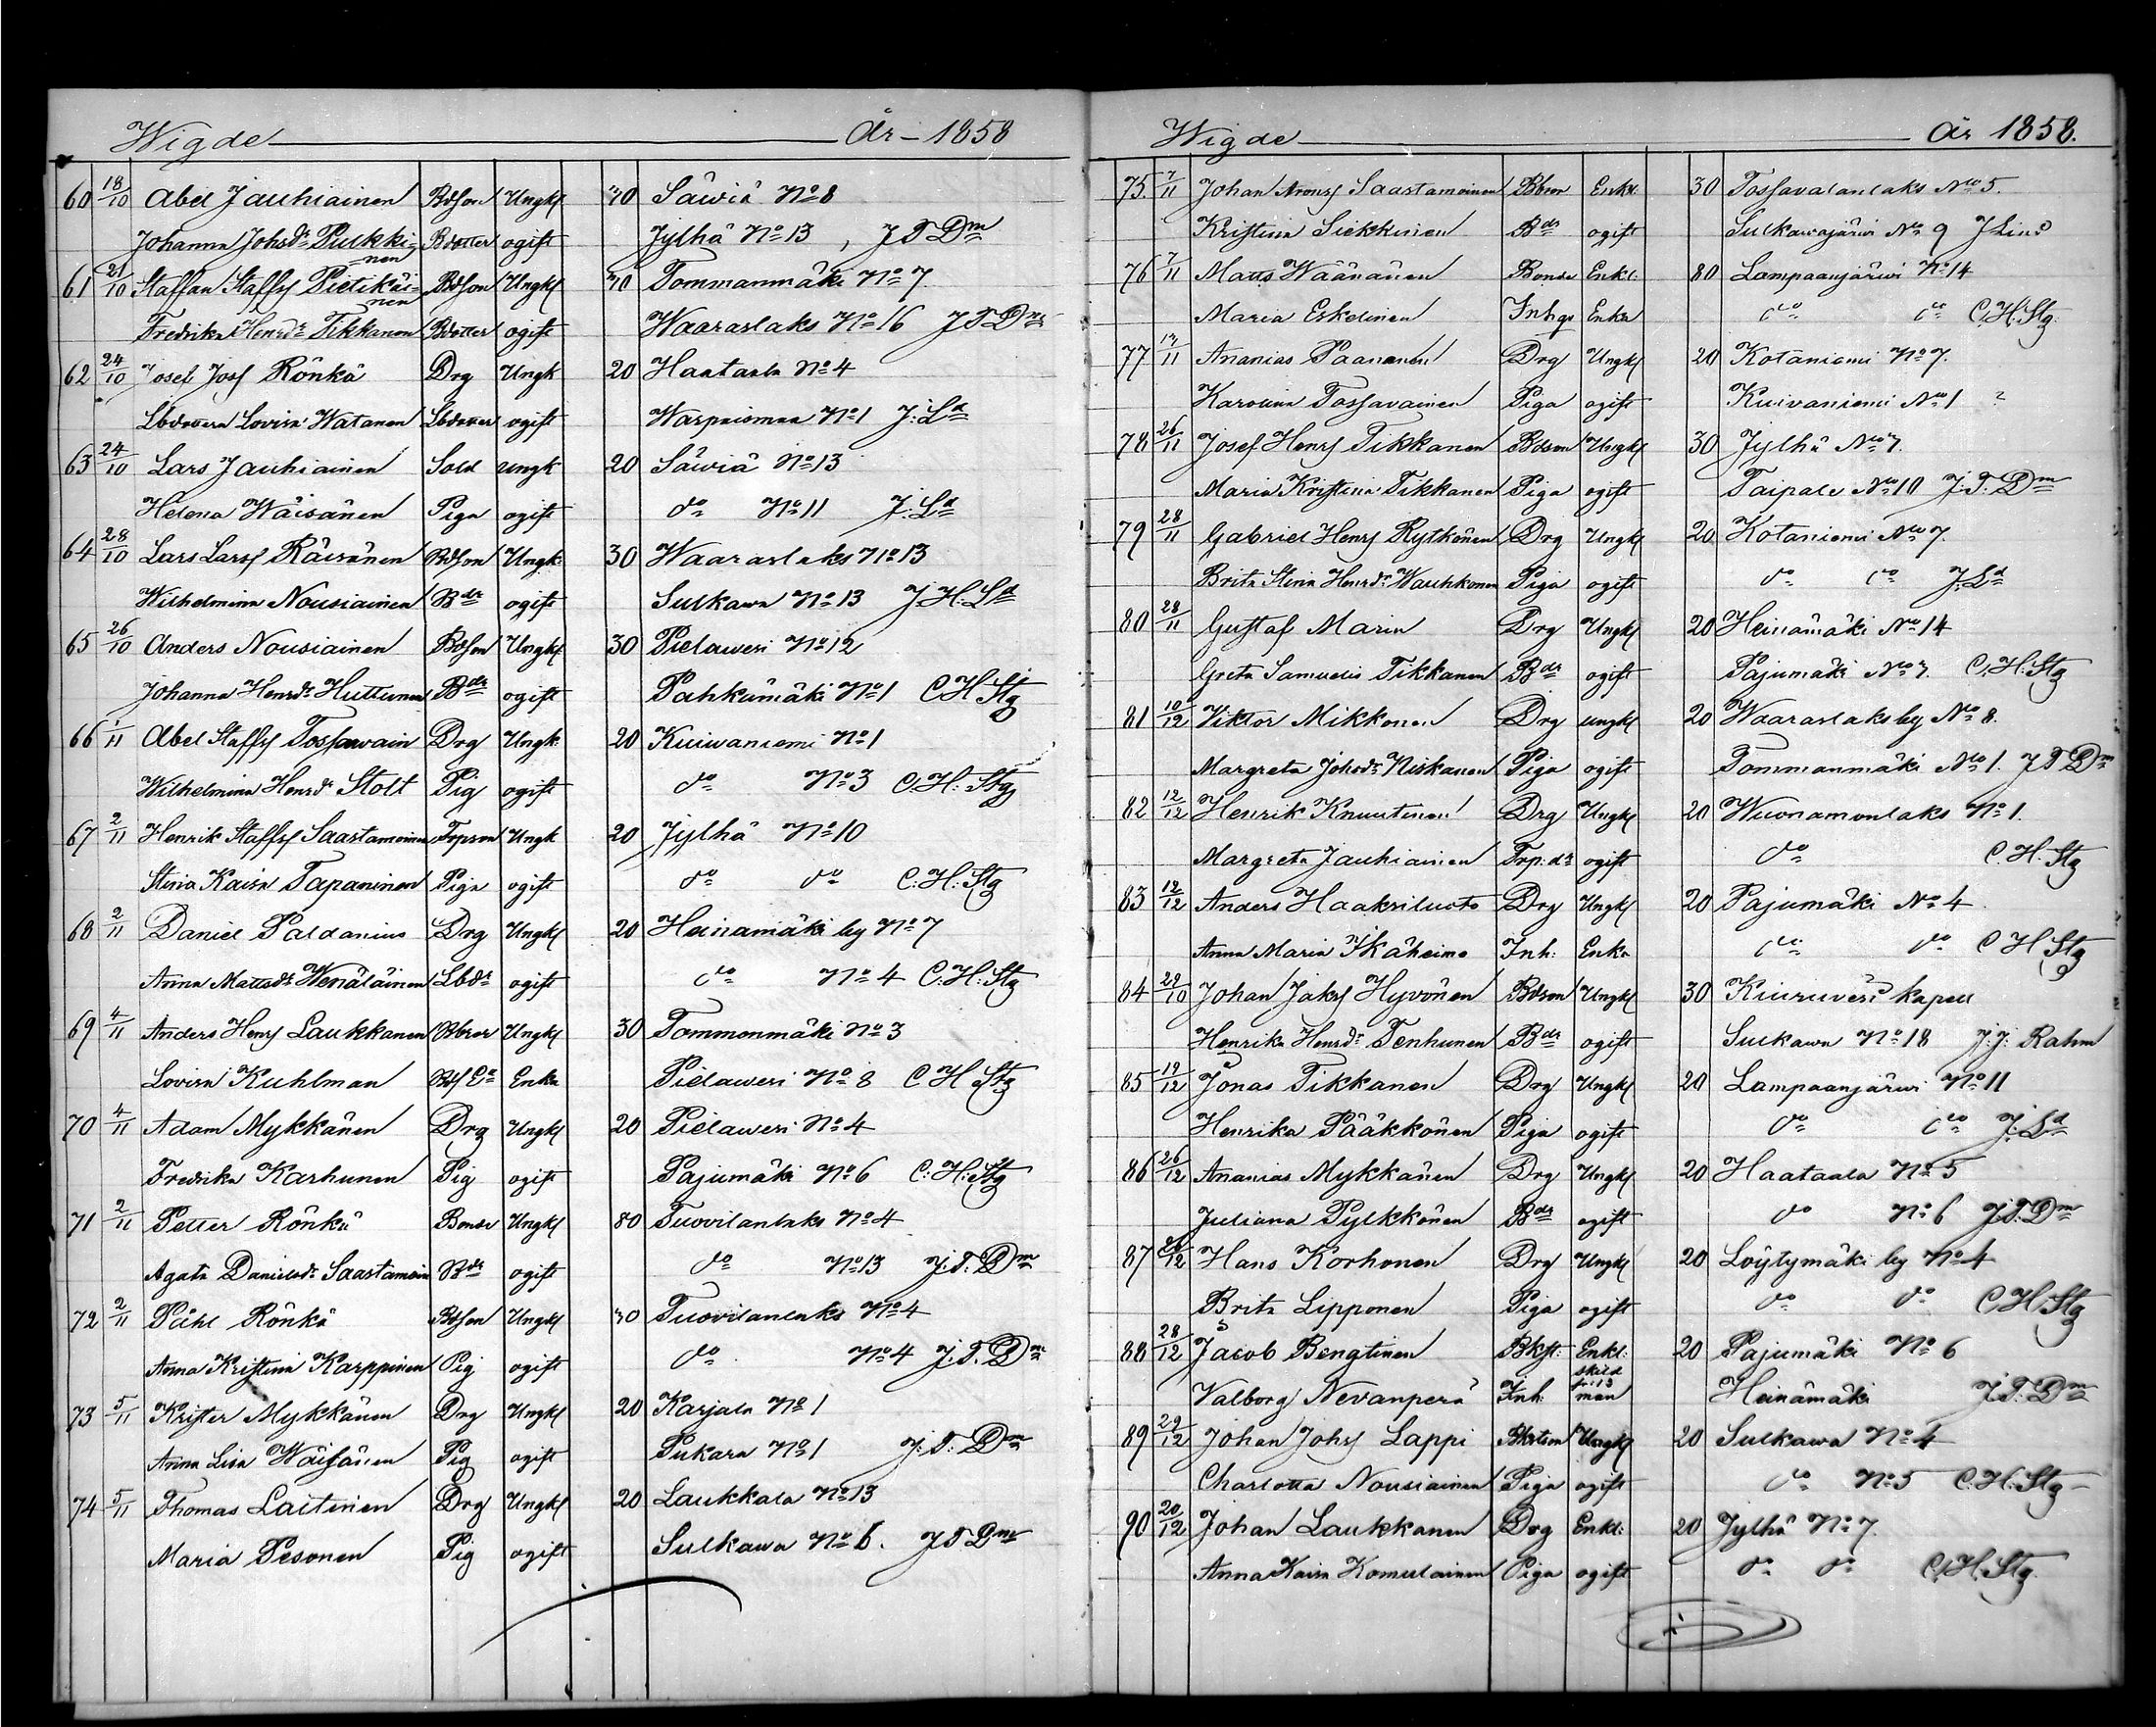 Wigde År - 1858
60 18/10 Abel Jauhiainen Bdson Ungk 30 Säwiä No 8
Johanna Johsdr Pulkkinen Bdotter ogift Jylhä No 13, J T Dm
61 21/10 Staffan Staffss Pietikäinen Bdson Ungk 30 Tommanmäki No 7.
Fredrika Henrdr Tikkanen Bdotter ogift Waaraslaks No 16 J T Dm
62 24/10 Josef Joss Rönkä Drg Ungk 20 Haataala No 4
Lbdottern Lovisa Watanen Lbdotter ogift Warpaismaa No 1 J: Ld
63 24/10 Lars Jauhiainen Sold ungk 20 Säwiä No 13
Helena Wäisänen Piga ogift do No 11 J: Ld
64 28/10 Lars Larss Räisänen Bdson Ungk 30 Waaraslaks No 13
Wilhelmina Nousiainen Bdr ogift Sulkawa No 13 J. H: Ld
65 26/10 Anders Nousiainen Bdson Ungk 30 Pielawesi No 12
Johanna Henrdr Huttunen Bdr ogift Pahkamäki No 1 C H Stg
66 1/11 Abel Staffss Tossawain Drg Ungk 20 Kuiwaniemi No 1
Wilhelmina Henrdr Stolt Pig ogift do No 3 C. H: Stg
67 2/11 Henrik Staffss Saastamoinen Torpson Ungk 20 Jylhä No 10
Stina Kaisa Tapaninen Piga ogift do do C: H: Stg
68 2/11 Daniel Paldanius Drg Ungk 20 Heinamäki by No 7
Anna Mattsdr Wenäläinen Lbdr ogift do No 4 C: H: Stg
69 4/11 Anders Henrs Laukkanen Bbror Ungk 30 Tommonmäki No 3
Lovisa Kuhlman Enka Pielawesi No 8 C H Stg
70 4/11 Adam Mykkänen Drg Ungk 20 Pielawesi No 4
Fredrika Karhunen Pig ogift Pajumäki No 6 C: H: Stg
71 2/11 Petter Rönkä Bonde Ungk 80 Tuovilanlaks No 4
Agata Danielsdr Saastamoin Bdr ogift do No 13 J. T. Dm
72 2/11 Påhl Rönkä Bdson Ungk 30 Tuovilanlaks No 4
Anna Kristina Karppinen Pig ogift do No 4 J. T. Dm
73 5/11 Krister Mykkänen Drg Ungk 20 Karjala No 1
Anna Lisa Wäisänen Pig ogift Pukara No 1 J: T: Dm
74 5/11 Thomas Laitinen Drg Ungk 20 Laukkala No 13
Maria Pesonen Pig ogift Sulkawa No 6. J T Dm
Wigde År 1858.
75. 7/11 Johan Aronss Saastamoinen Bbror Enkl 30 Tossavalanlaks No 5.
Kristina Siekkinen Bdr ogift Sulkawajärwi No 9 J Lind
76 7/11 Matts Wäänänen Bonde Enkl: 80 Lampaanjärwi No 14
Maria Eskelinen Inhgs Enka do do C. H. Stg.
77 14/11 Ananias Paananen Drg Ungk 20 Kotaniemi No 7.
Karolina Tossavainen Piga ogift Kuivaniemi No 1 ?
78 26/11 Josef Henrs Tikkanen Bdson Ungk 30 Jylhä No 7.
Maria Kristina Tikkanen Piga ogift Taipale No 10 J. T. Dm
79 28/11 Gabriel Henrs Rytkönen Drg Ungk 20 Kotaniemi No 7.
Brita Stina Henrdr Wauhkonen Piga ogift do do J. Ld
80 28/11 Gustaf Marin Drg Ungk 20 Heinämäki No 14
Greta Samuelis Tikkanen Bdr ogift Pajumäki No 7. C. H: Stg
81 10/12 Viktor Mikkonen Drg ungk 20 Waaraslaks by No 8.
Margreta Johsdr Niskanen Piga ogift Tommanmäki No 1. J T Dm
82 12/12 Henrik Knuutinen Drg Ungk 20 Wuonamonlaks No 1.
Margreta Jauhiainen Trp: dr ogift do C. H. Stg
83 12/12 Anders Haaksiluoto Drg Ungk 20 Pajumäki No 4
Anna Maria Ikäheimo Inh: Enka do do C H Stg
84 22/10 Johan Jaks Hyvönen Bdson Ungk 30 Kiuruvesi kapell
Henrika Henrdr Tenhunen Bdr ogift Sulkawa No 18 J: J: Rahm
85 19/12 Jonas Tikkanen Drg Ungk 20 Lampaanjärwi No 11
Henrika Pääkkönen Piga ogift do do J. Ld
86 26/12 Ananias Mykkänen Drg Ungk 20 Haataala No 5
Juliana Pylkkönen Bdr ogift do No 6 J. T. Dm
87 26/12 Hans Korhonen Drg Ungk 20 Löytymäki by No 4
Brita Lipponen Piga ogift do do C H Stg
88 28/12 Jacob Bengtinen Bkst: Enkl: 20 Pajumäki No 6
Valborg Nevanperä Inh. skild från man Heinämäki J. T. Dm
89 29/12 Johan Johs Lappi Bkstson Ungk 20 Sulkawa No 4
Charlotta Nousiainen Piga ogift do No 5 C. H. Stg
90 20/12 Johan Laukkanen Drg Enkl: 20 Jylhä No 7
Anna Kaisa Komulainen Piga ogift do do C. H. Stg.